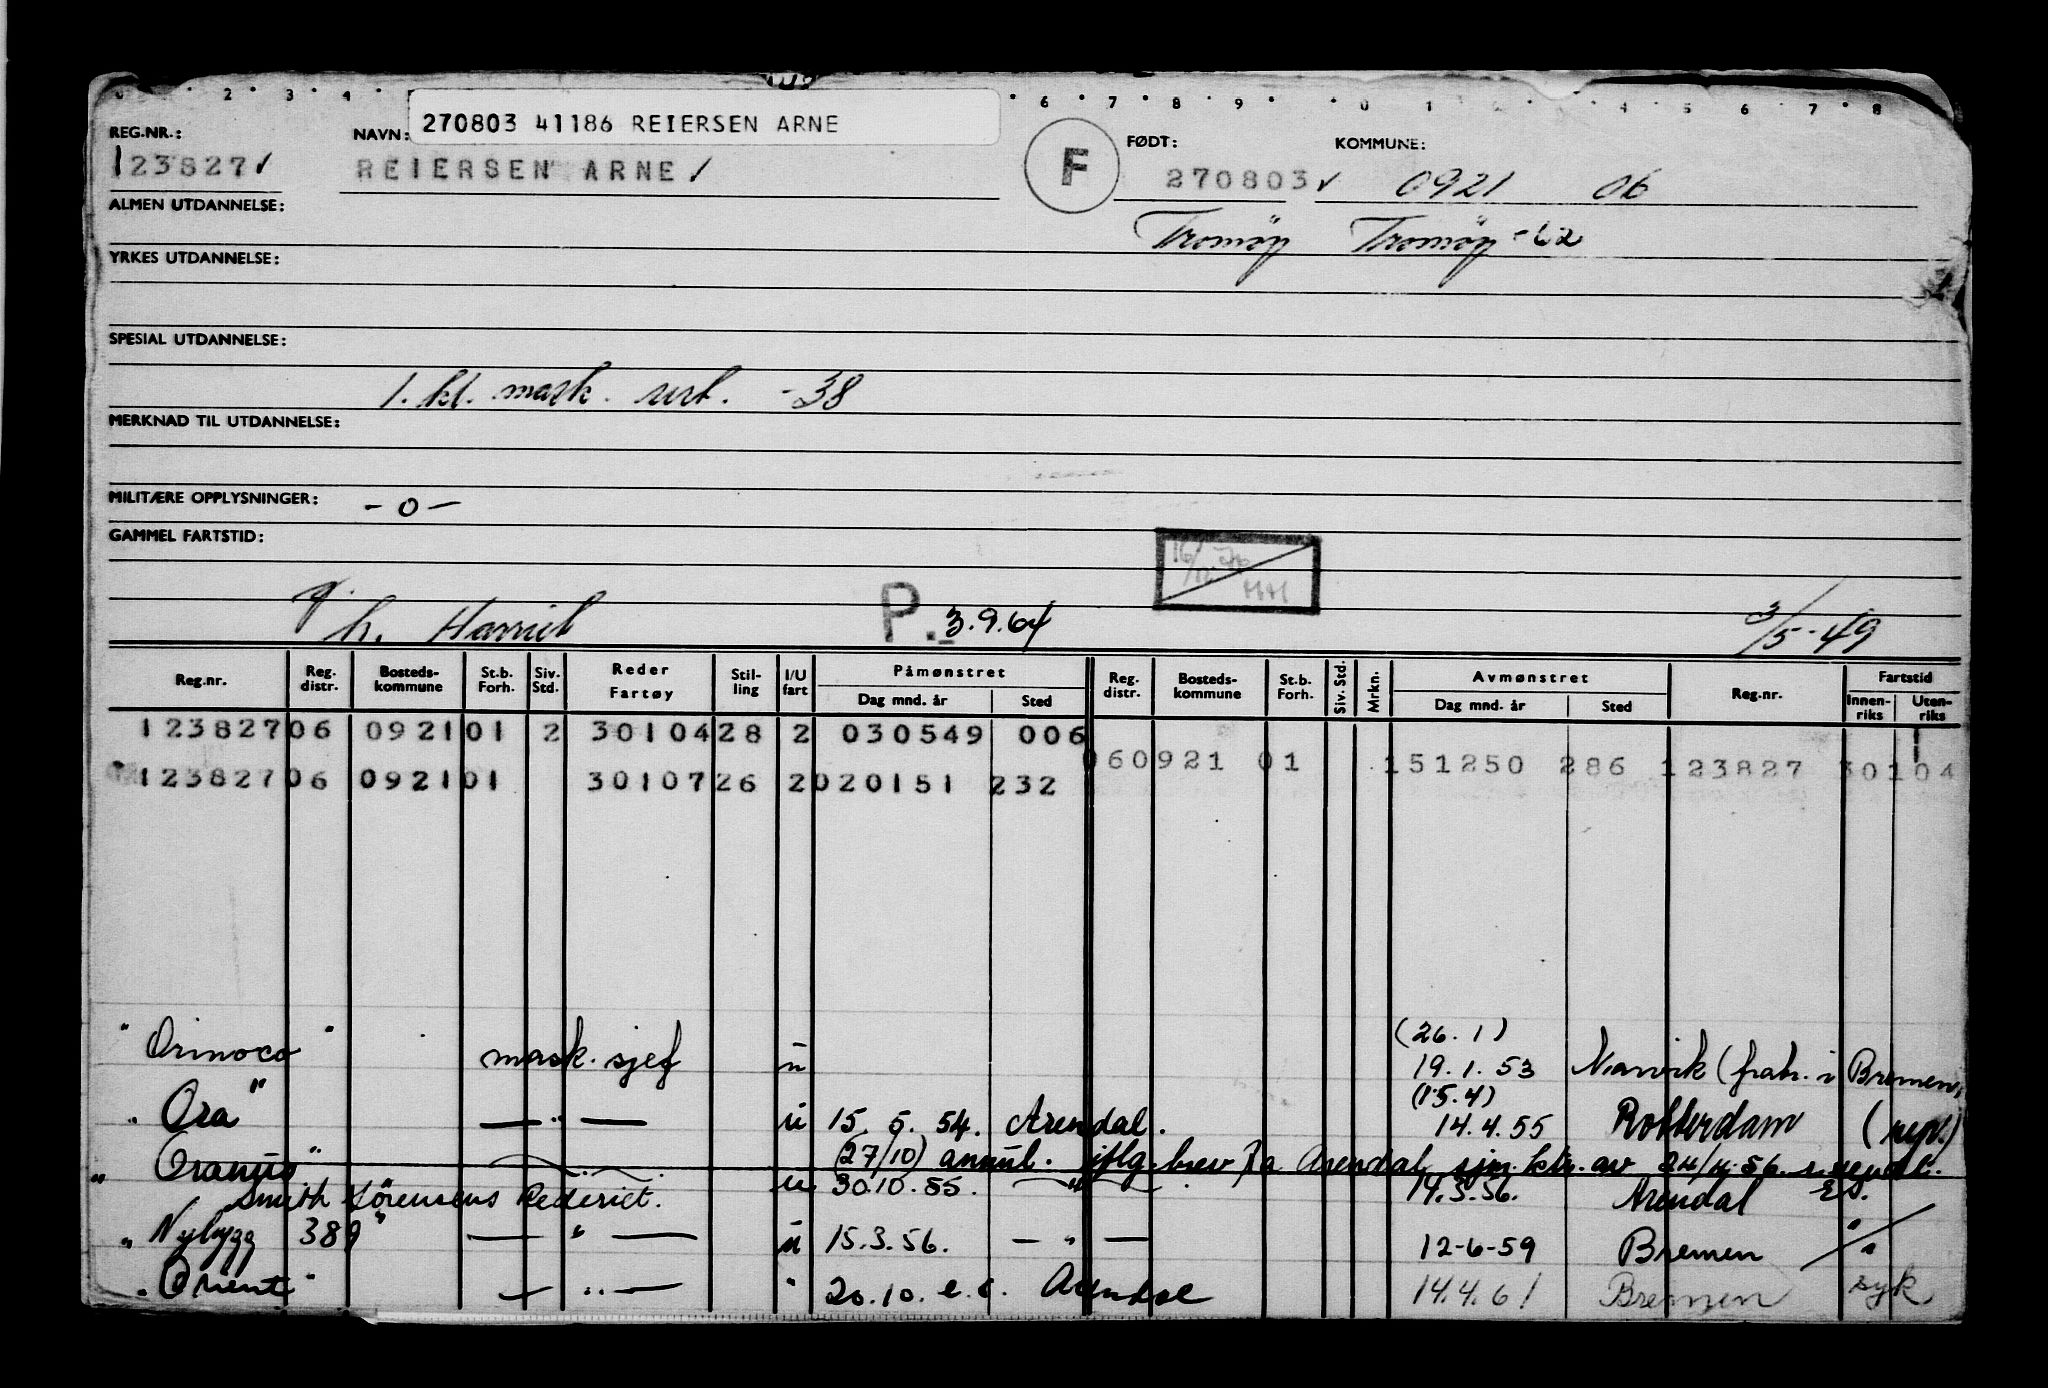 2 3 4 6 7 8 9 0 1 2 4 5 6 7 8
REG.NR.: NAVN: 270803 41186 REIERSEN ARNE FØDT: KOMMUNE:
123827 REIERSEN ARNE F 270803 0921 06
ALMEN UTDANNELSE: Tromøy Tromøy -62
YRKES UTDANNELSE:
SPESIAL UTDANNELSE:
1. kl. mask. sert. -38
MERKNAD TIL UTDANNELSE:
MILITÆRE OPPLYSNINGER: -0-
GAMMEL FARTSTID:
h. Harriet P. 3.9.64 3/5-49
Reg.nr. Reg. distr. Bosteds- kommune St.b. Forh. Siv. Std. Reder Fartøy Stil- ling I/U fart Påmønstret Dag mnd. år Sted Reg. distr. Bosteds- kommune St.b. Forh. Siv. Std. Mrkn. Avmønstret Dag mnd. år Sted Reg.nr. Fartstid Innen- riks Uten- riks
123827 06 0921 01 2 30104 28 2 030549 006
060921 01 151250 286 123827 30104
123827 06 0921 01 30107 26 2 020151 232
(26.1)
"Orinoco" mask. sjef u 19.1.53 Narvik (fratr. i Bremen,
(15.4)
"Ora" — " — u 15.5.54. Arendal. 14.4.55 Rotterdam (repr.)
"Oranus" (27/10) annul. iflg. brev fra Arendal sjm. ktr. av 24/4.56.
Smith Sörensens Rederiet. u 30.10.55. " 14.3.56. Arendal
"Nybygg 389" — " — u 15.3.56. — " — 12-6-59 Bremen "
"Orient" — " — " 20.10. Arendal 14.4.61 Bremen syk.